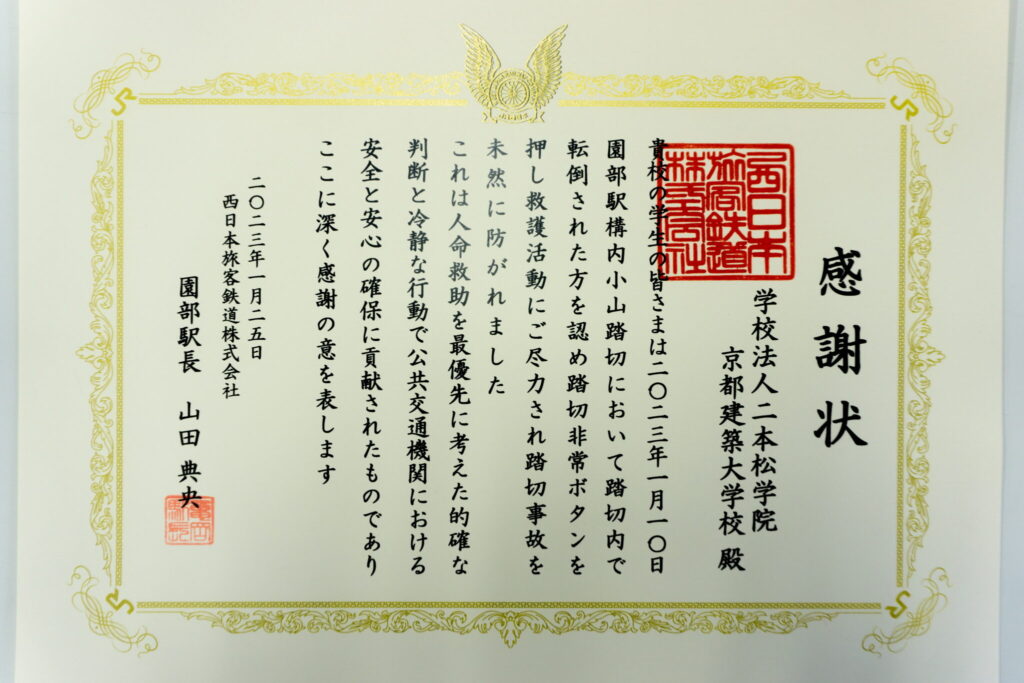 感謝状
学校法人二本松学院
京都建築大学校 殿
西日本
旅客鉄道
株式会社
貴校の学生の皆さまは二〇二三年一月一〇日
園部駅構内小山踏切において踏切内で
転倒された方を認め踏切非常ボタンを
押し救護活動にご尽力され踏切事故を
未然に防がれました
これは人命救助を最優先に考えた的確な
判断と冷静な行動で公共交通機関における
安全と安心の確保に貢献されたものであり
ここに深く感謝の意を表します
二〇二三年一月二五日
西日本旅客鉄道株式会社
園部駅長 山田 典央
JR
JR
JR
JR